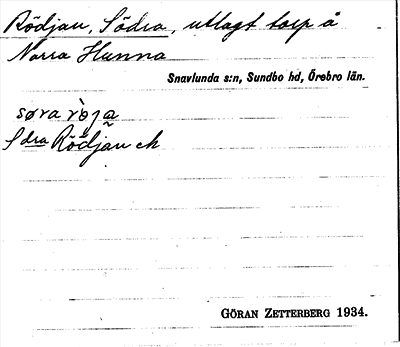 Rödjan, Södra, utlagt torp å
Norra Hunna
Snavlunda s:n, Sundbo hd, Örebro län.
søra ròja
Sdra Rödjan ek
GÖRAN ZETTERBERG 1934.